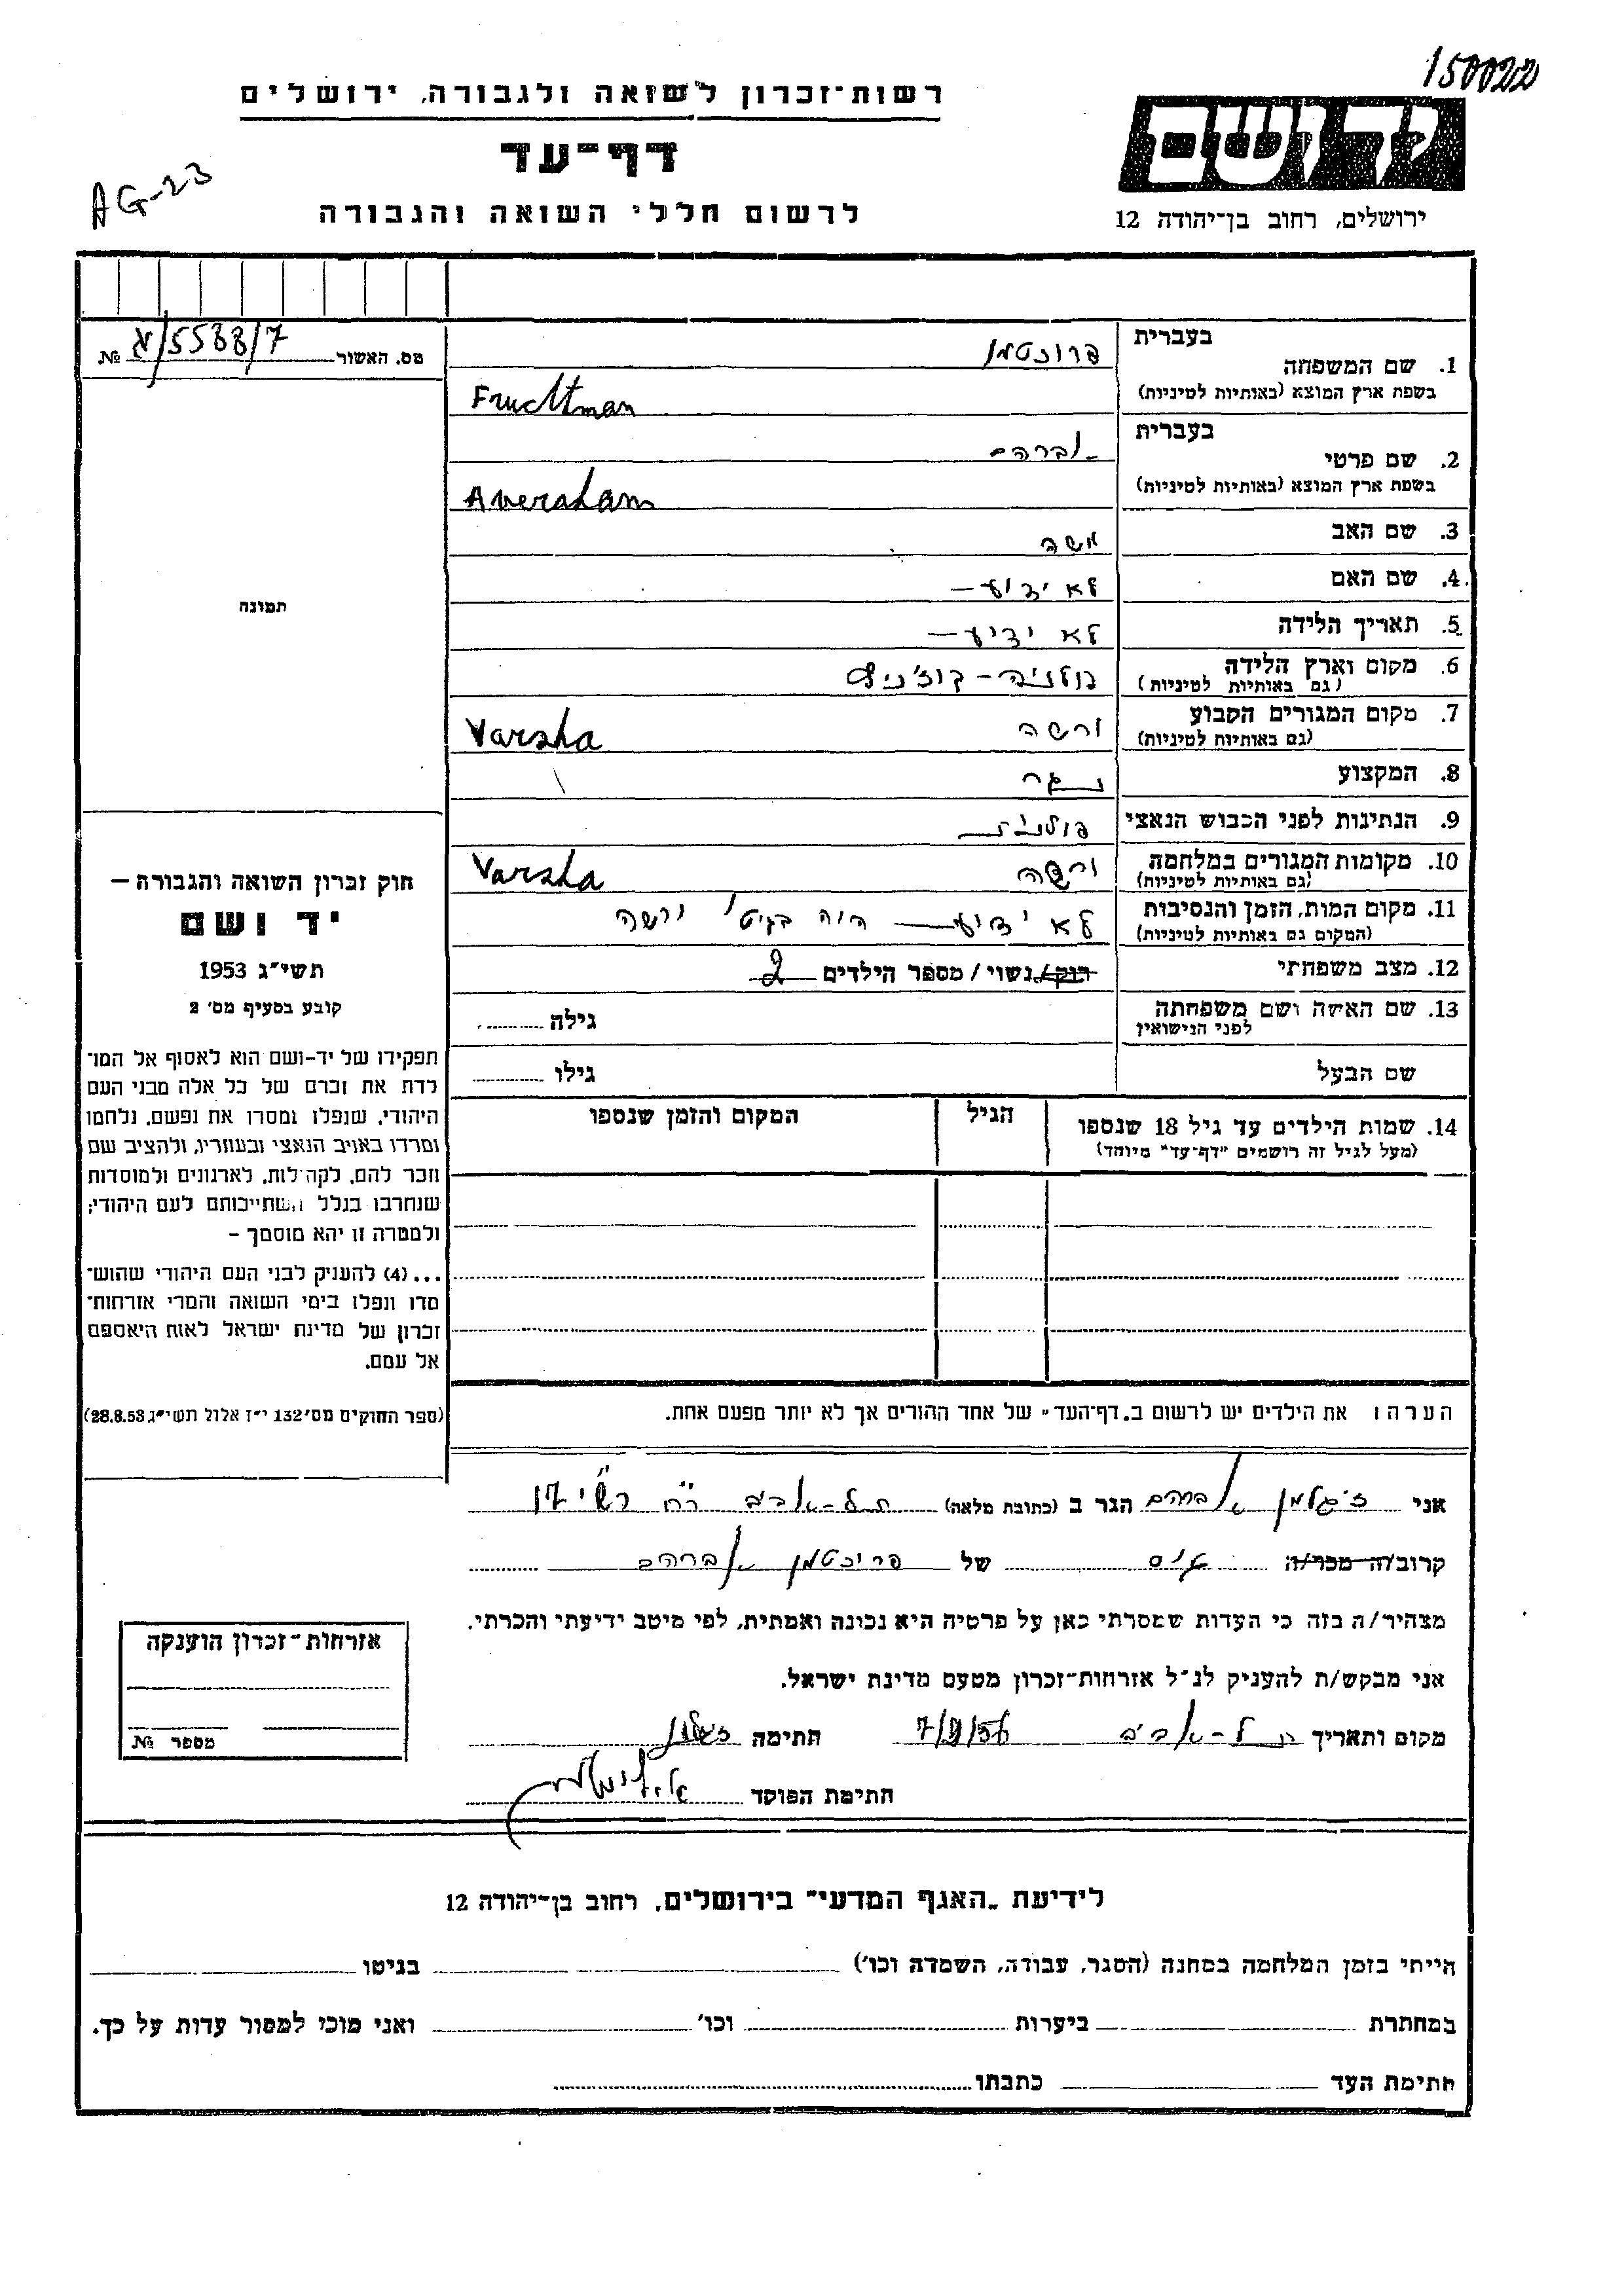 150022
רשות־זכרון לשואה ולגבורה, ירושלים
דף־עד
לרשום חללי השואה והגבורה
AG-23
ידושם
ירושלים, רחוב בן־יהודה 12
מס. האשור 5588/7 №
בעברית
1. שם המשפחה פרוכטמן
בשפת ארץ המוצא (באותיות לטיניות) Fruchtman
בעברית
2. שם פרטי אברהם
בשפת ארץ המוצא (באותיות לטיניות) Averaham
3. שם האב משה
4. שם האם לא ידוע —
5. תאריך הלידה לא ידוע —
6. מקום וארץ הלידה פולניה –
(גם באותיות לטיניות)
7. מקום המגורים הקבוע ורשה Varsha
(גם באותיות לטיניות)
8. המקצוע נגר
9. הנתינות לפני הכבוש הנאצי פולנית
10. מקומות המגורים במלחמה ורשה Varsha
(גם באותיות לטיניות)
11. מקום המות, הזמן והנסיבות לא ידוע — היה בגיטו ורשה
(המקום גם באותיות לטיניות)
12. מצב משפחתי רוק/נשוי/מספר הילדים 2
13. שם האשה ושם משפחתה גילה
לפני הנישואין
שם הבעל גילו
14. שמות הילדים עד גיל 18 שנספו הגיל המקום והזמן שנספו
(מעל לגיל זה רושמים "דף־עד" מיוחד)
הערה: את הילדים יש לרשום ב„דף־העד" של אחד ההורים אך לא יותר מפעם אחת.
תמונה
חוק זכרון השואה והגבורה —
יד ושם
תשי"ג 1953
קובע בסעיף מס' 2
תפקידו של יד-ושם הוא לאסוף אל המו־
לדת את זכרם של כל אלה מבני העם
היהודי, שנפלו ומסרו את נפשם, נלחמו
ומרדו באויב הנאצי ובעוזריו, ולהציב שם
וזכר להם, לקהלות, לארגונים ולמוסדות
שנחרבו בגלל השתייכותם לעם היהודי;
ולמטרה זו יהא מוסמך –
...(4) להעניק לבני העם היהודי שהוש־
מדו ונפלו בימי השואה והמרי אזרחות־
זכרון של מדינת ישראל לאות היאספם
אל עמם.
(ספר החוקים מס' 132 י"ז אלול תשי"ג 28.8.53)
אני זיגלמן אברהם הגר ב (כתובת מלאה) תל-אביב רח' רש"י 17
קרוב/ה מכר/ה גיס של פרוכטמן אברהם
מצהיר/ה בזה כי העדות שמסרתי כאן על פרטיה היא נכונה ואמתית, לפי מיטב ידיעתי והכרתי.
אני מבקש/ת להעניק לנ"ל אזרחות־זכרון מטעם מדינת ישראל.
מקום ותאריך תל-אביב 7/9/56 חתימה
חתימת הפוקד
אזרחות־זכרון הוענקה
מספר №
לידיעת „האגף המדעי" בירושלים, רחוב בן־יהודה 12
הייתי בזמן המלחמה במחנה (הסגר, עבודה, השמדה וכו') בגיטו
במחתרת ביערות וכו' ואני מוכן למסור עדות על כך.
חתימת העד כתבתו